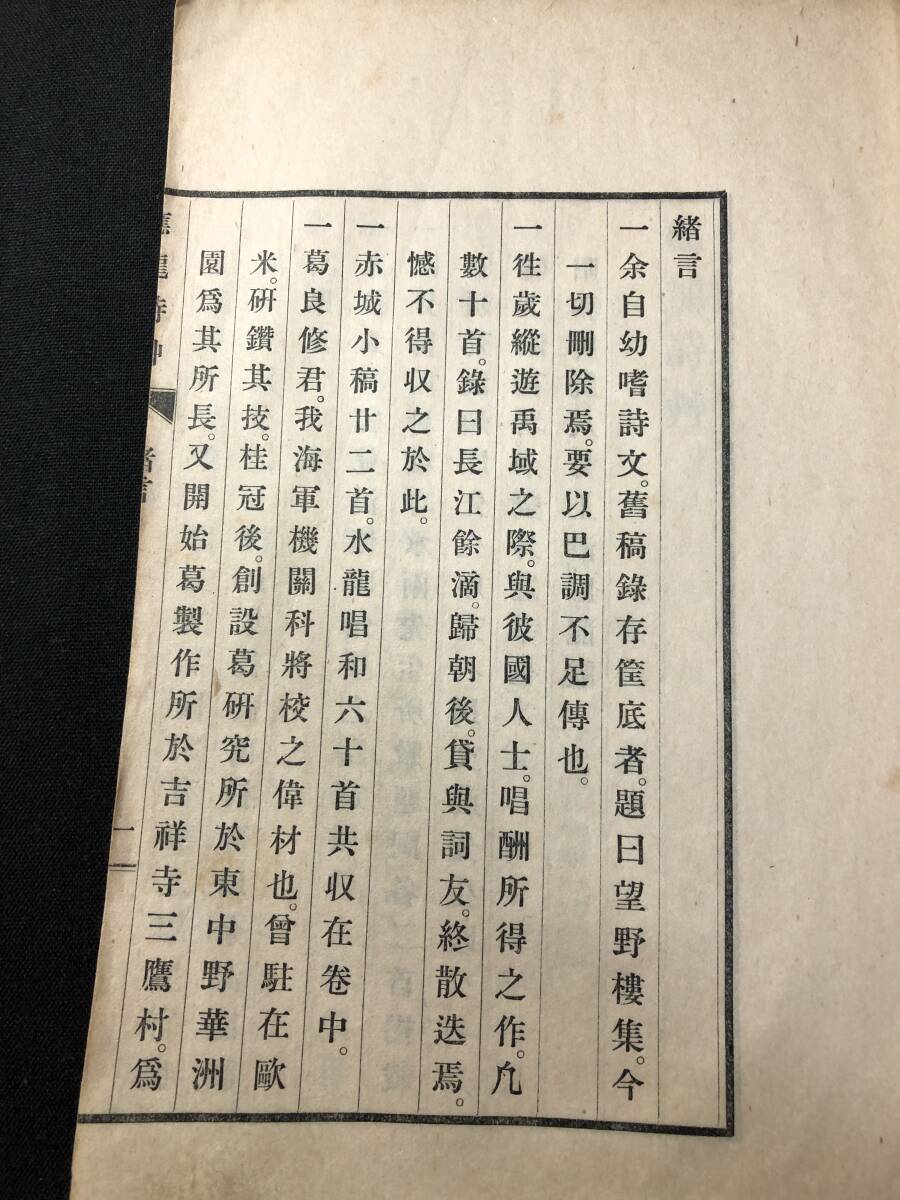 緒言
一余自幼嗜詩文。舊稿錄存筐底者。題曰望野樓集。今
一切刪除焉。要以巴調不足傳也。
一徃歲縱遊禹域之際。與彼國人士。唱酬所得之作。凢
數十首。錄曰長江餘滴。歸朝後。貸與詞友。終散迭焉。
憾不得収之於此。
一赤城小稿廿二首。水龍唱和六十首共収在卷中。
一葛良修君。我海軍機關科將校之偉材也。曾駐在歐
米。硏鑽其技。桂冠後。創設葛硏究所於東中野華洲
園爲其所長。又開始葛製作所於吉祥寺三鷹村。爲
緒言
一